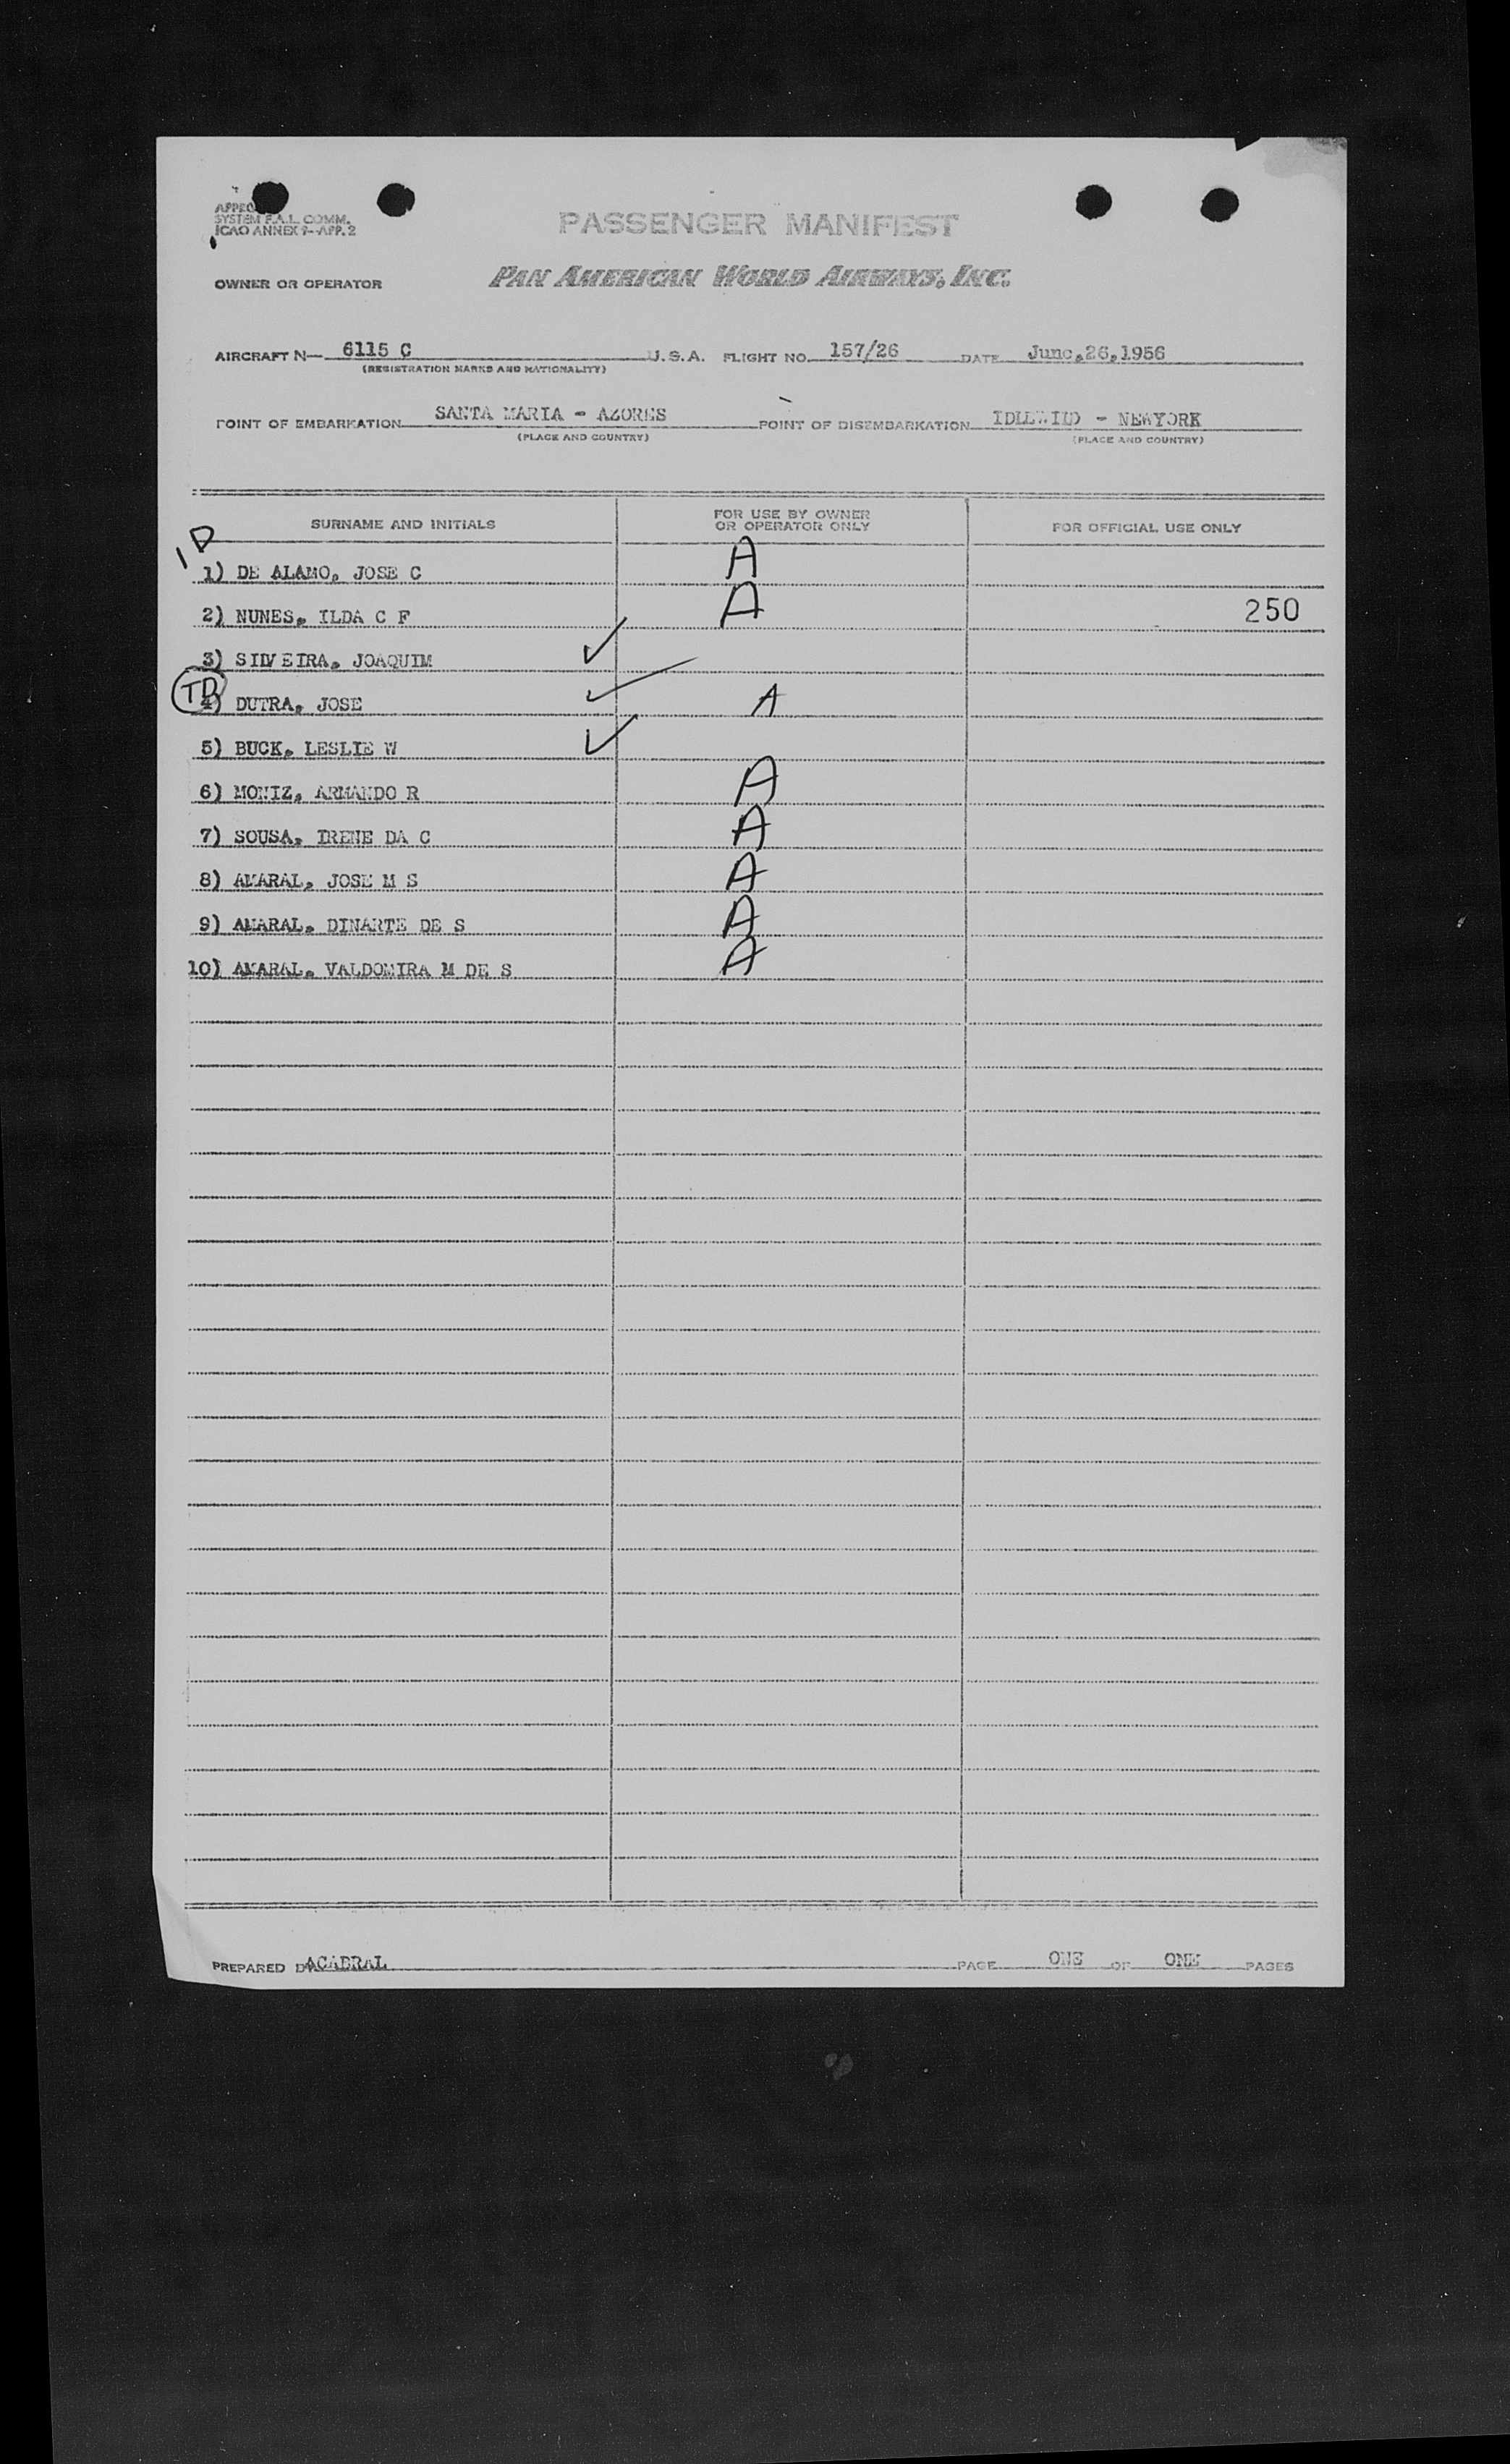 SYSTEM F.A.L. COMM.
ICAO ANNEX 9-APP. 2
PASSENGER MANIFEST
OWNER OR OPERATOR PAN AMERICAN WORLD AIRWAYS, INC.
AIRCRAFT N— 6115 C U.S.A. FLIGHT NO. 157/26 DATE June,26,1956
(REGISTRATION MARKS AND NATIONALITY)
POINT OF EMBARKATION SANTA MARIA - AZORES POINT OF DISEMBARKATION IDLEWILD - NEWYORK
(PLACE AND COUNTRY) (PLACE AND COUNTRY)
SURNAME AND INITIALS FOR USE BY OWNER OR OPERATOR ONLY FOR OFFICIAL USE ONLY
1 D
1) DE ALAMO, JOSE C A
2) NUNES, ILDA C F A 250
3) SILVEIRA, JOAQUIM ✓
TD 4) DUTRA, JOSE ✓ A
5) BUCK, LESLIE W ✓
6) MONIZ, ARMANDO R A
7) SOUSA, IRENE DA C A
8) AMARAL, JOSE M S A
9) AMARAL, DINARTE DE S A
10) AMARAL, VALDOMIRA M DE S A
PREPARED ACABRAL PAGE ONE OF ONE PAGES